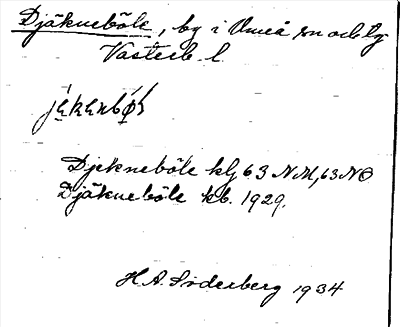 Djäkneböle, by i Umeå sn och tg
Västerb. l.
Djekneböle klj 63 NM, 63 NO
Djäkneböle kb. 1929.
H. A. Söderberg 1934